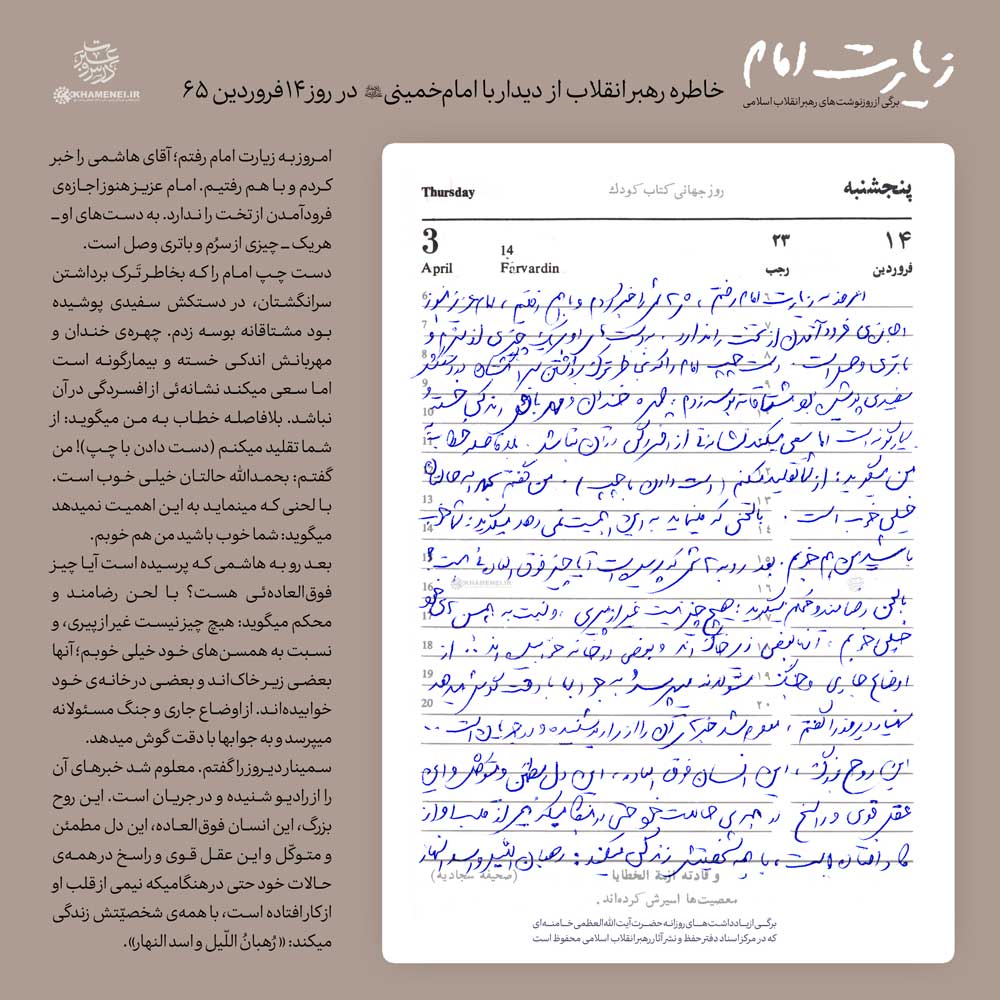 زیارت امام
برگی از روزنوشت‌های رهبر انقلاب اسلامی
خاطره رهبر انقلاب از دیدار با امام‌خمینی در روز ۱۴ فروردین ۶۵
KHAMENEI.IR
امروز به زیارت امام رفتم؛ آقای هاشمی را خبر
کردم و با هم رفتیم. امام عزیز هنوز اجازه‌ی
فرودآمدن از تخت را ندارد. به دست‌های او ـ
هریک ـ چیزی از سرُم و باتری وصل است.
دست چپ امام را که بخاطر تَرک برداشتن
سرانگشتان، در دستکش سفیدی پوشیده
بود مشتاقانه بوسه زدم. چهره‌ی خندان و
مهربانش اندکی خسته و بیمارگونه است
اما سعی میکند نشانه‌ئی از افسردگی در آن
نباشد. بلافاصله خطاب به من میگوید: از
شما تقلید میکنم (دست دادن با چپ)! من
گفتم: بحمدالله حالتان خیلی خوب است.
با لحنی که مینماید به این اهمیت نمیدهد
میگوید: شما خوب باشید من هم خوبم.
بعد رو به هاشمی که پرسیده است آیا چیز
فوق‌العاده‌ئی هست؟ با لحن رضامند و
محکم میگوید: هیچ چیز نیست غیر از پیری، و
نسبت به همسن‌های خود خیلی خوبم؛ آنها
بعضی زیر خاک‌اند و بعضی در خانه‌ی خود
خوابیده‌اند. از اوضاع جاری و جنگ مسئولانه
میپرسد و به جوابها با دقت گوش میدهد.
سمینار دیروز را گفتم. معلوم شد خبرهای آن
را از رادیو شنیده و در جریان است. این روح
بزرگ، این انسان فوق‌العاده، این دل مطمئن
و متوکّل و این عقل قوی و راسخ در همه‌ی
حالات خود حتی در هنگامیکه نیمی از قلب او
از کار افتاده است، با همه‌ی شخصیّتش زندگی
میکند: «رُهبانُ اللّیل و اسد النهار».
پنجشنبه
روز جهانی کتاب کودک
Thursday
۱۴
۲۳
14
3
فروردین
رجب
Farvardin
April
امروز به زیارت امام رفتم، هاشمی را خبر کردم و با هم رفتیم، امام عزیز هنوز
اجازه‌ی فرود آمدن از تخت را ندارد. به دستهای او هریک چیزی از سرم و
باتری وصل است. دست چپ امام را که بخاطر ترک برداشتن سر انگشتان در دستکش
سفیدی پوشیده بود مشتاقانه بوسه زدم، چهره خندان و مهربانش اندکی خسته و
بیمارگونه است اما سعی میکند نشانه‌ئی از افسردگی در آن نباشد. بلافاصله خطاب به
من میگوید: از شما تقلید میکنم (دست دادن با چپ). من گفتم بحمدالله حالتان
خیلی خوب است. با لحنی که مینماید به این اهمیت نمی دهد میگوید: شما خوب
باشید من هم خوبم. بعد رو به هاشمی که پرسیده است آیا چیز فوق العاده‌ئی هست؟
با لحن رضامند و محکم میگوید: هیچ چیز نیست غیر از پیری، و نسبت به همسن های خود
خیلی خوبم، آنها بعضی زیر خاک اند و بعضی در خانه خوابیده اند... از
اوضاع جاری و جنگ مسئولانه میپرسد و به جوابها با دقت گوش میدهد
سمینار دیروز را گفتم، معلوم شد خبرهای آن را از رادیو شنیده و در جریان است...
این روح بزرگ، این انسان فوق العاده، این دل مطمئن و متوکل و این
عقل قوی و راسخ در همه‌ی حالات خود حتی در هنگامیکه نیمی از قلب او از
کار افتاده است، با همه شخصیتش زندگی میکند: رهبان اللیل و اسد النهار
6
7
8
9
10
11
13
14
15
16
17
18
19
20
KHAMENEI.IR
و قادته ازمة الخطایا
(صحیفه سجادیه)
معصیت‌ها اسیرش کرده‌اند.
برگی از یادداشت‌های روزانه حضرت آیت‌الله‌العظمی خامنه‌ای
که در مرکز اسناد دفتر حفظ و نشر آثار رهبر انقلاب اسلامی محفوظ است